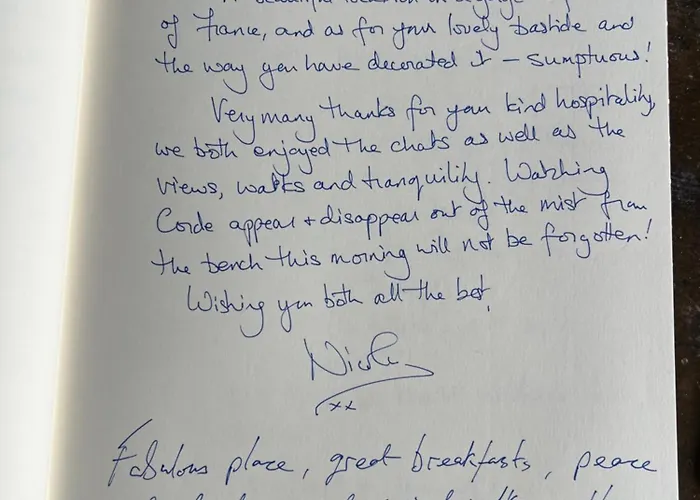 of France, and as for your lovely bastide and
the way you have decorated it – sumptuous!
Very many thanks for your kind hospitality,
we both enjoyed the chats as well as the
views, walks and tranquility. Watching
Corde appear + disappear out of the mist from
the bench this morning will not be forgotten!
Wishing you both all the best,
Nicole
xx
Fabulous place, great breakfasts, peace